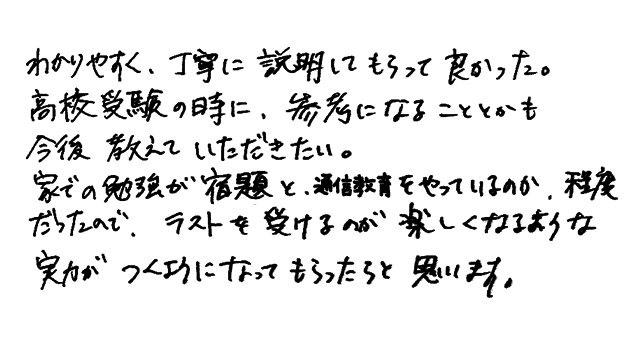 わかりやすく、丁寧に説明してもらって良かった。
高校受験の時に、参考になることとかも
今後教えていただきたい。
家での勉強が宿題と、通信教育をやっているのか、程度
だったので、テストを受けるのが楽しくなるような
実力がつくようになってもらったらと思います。